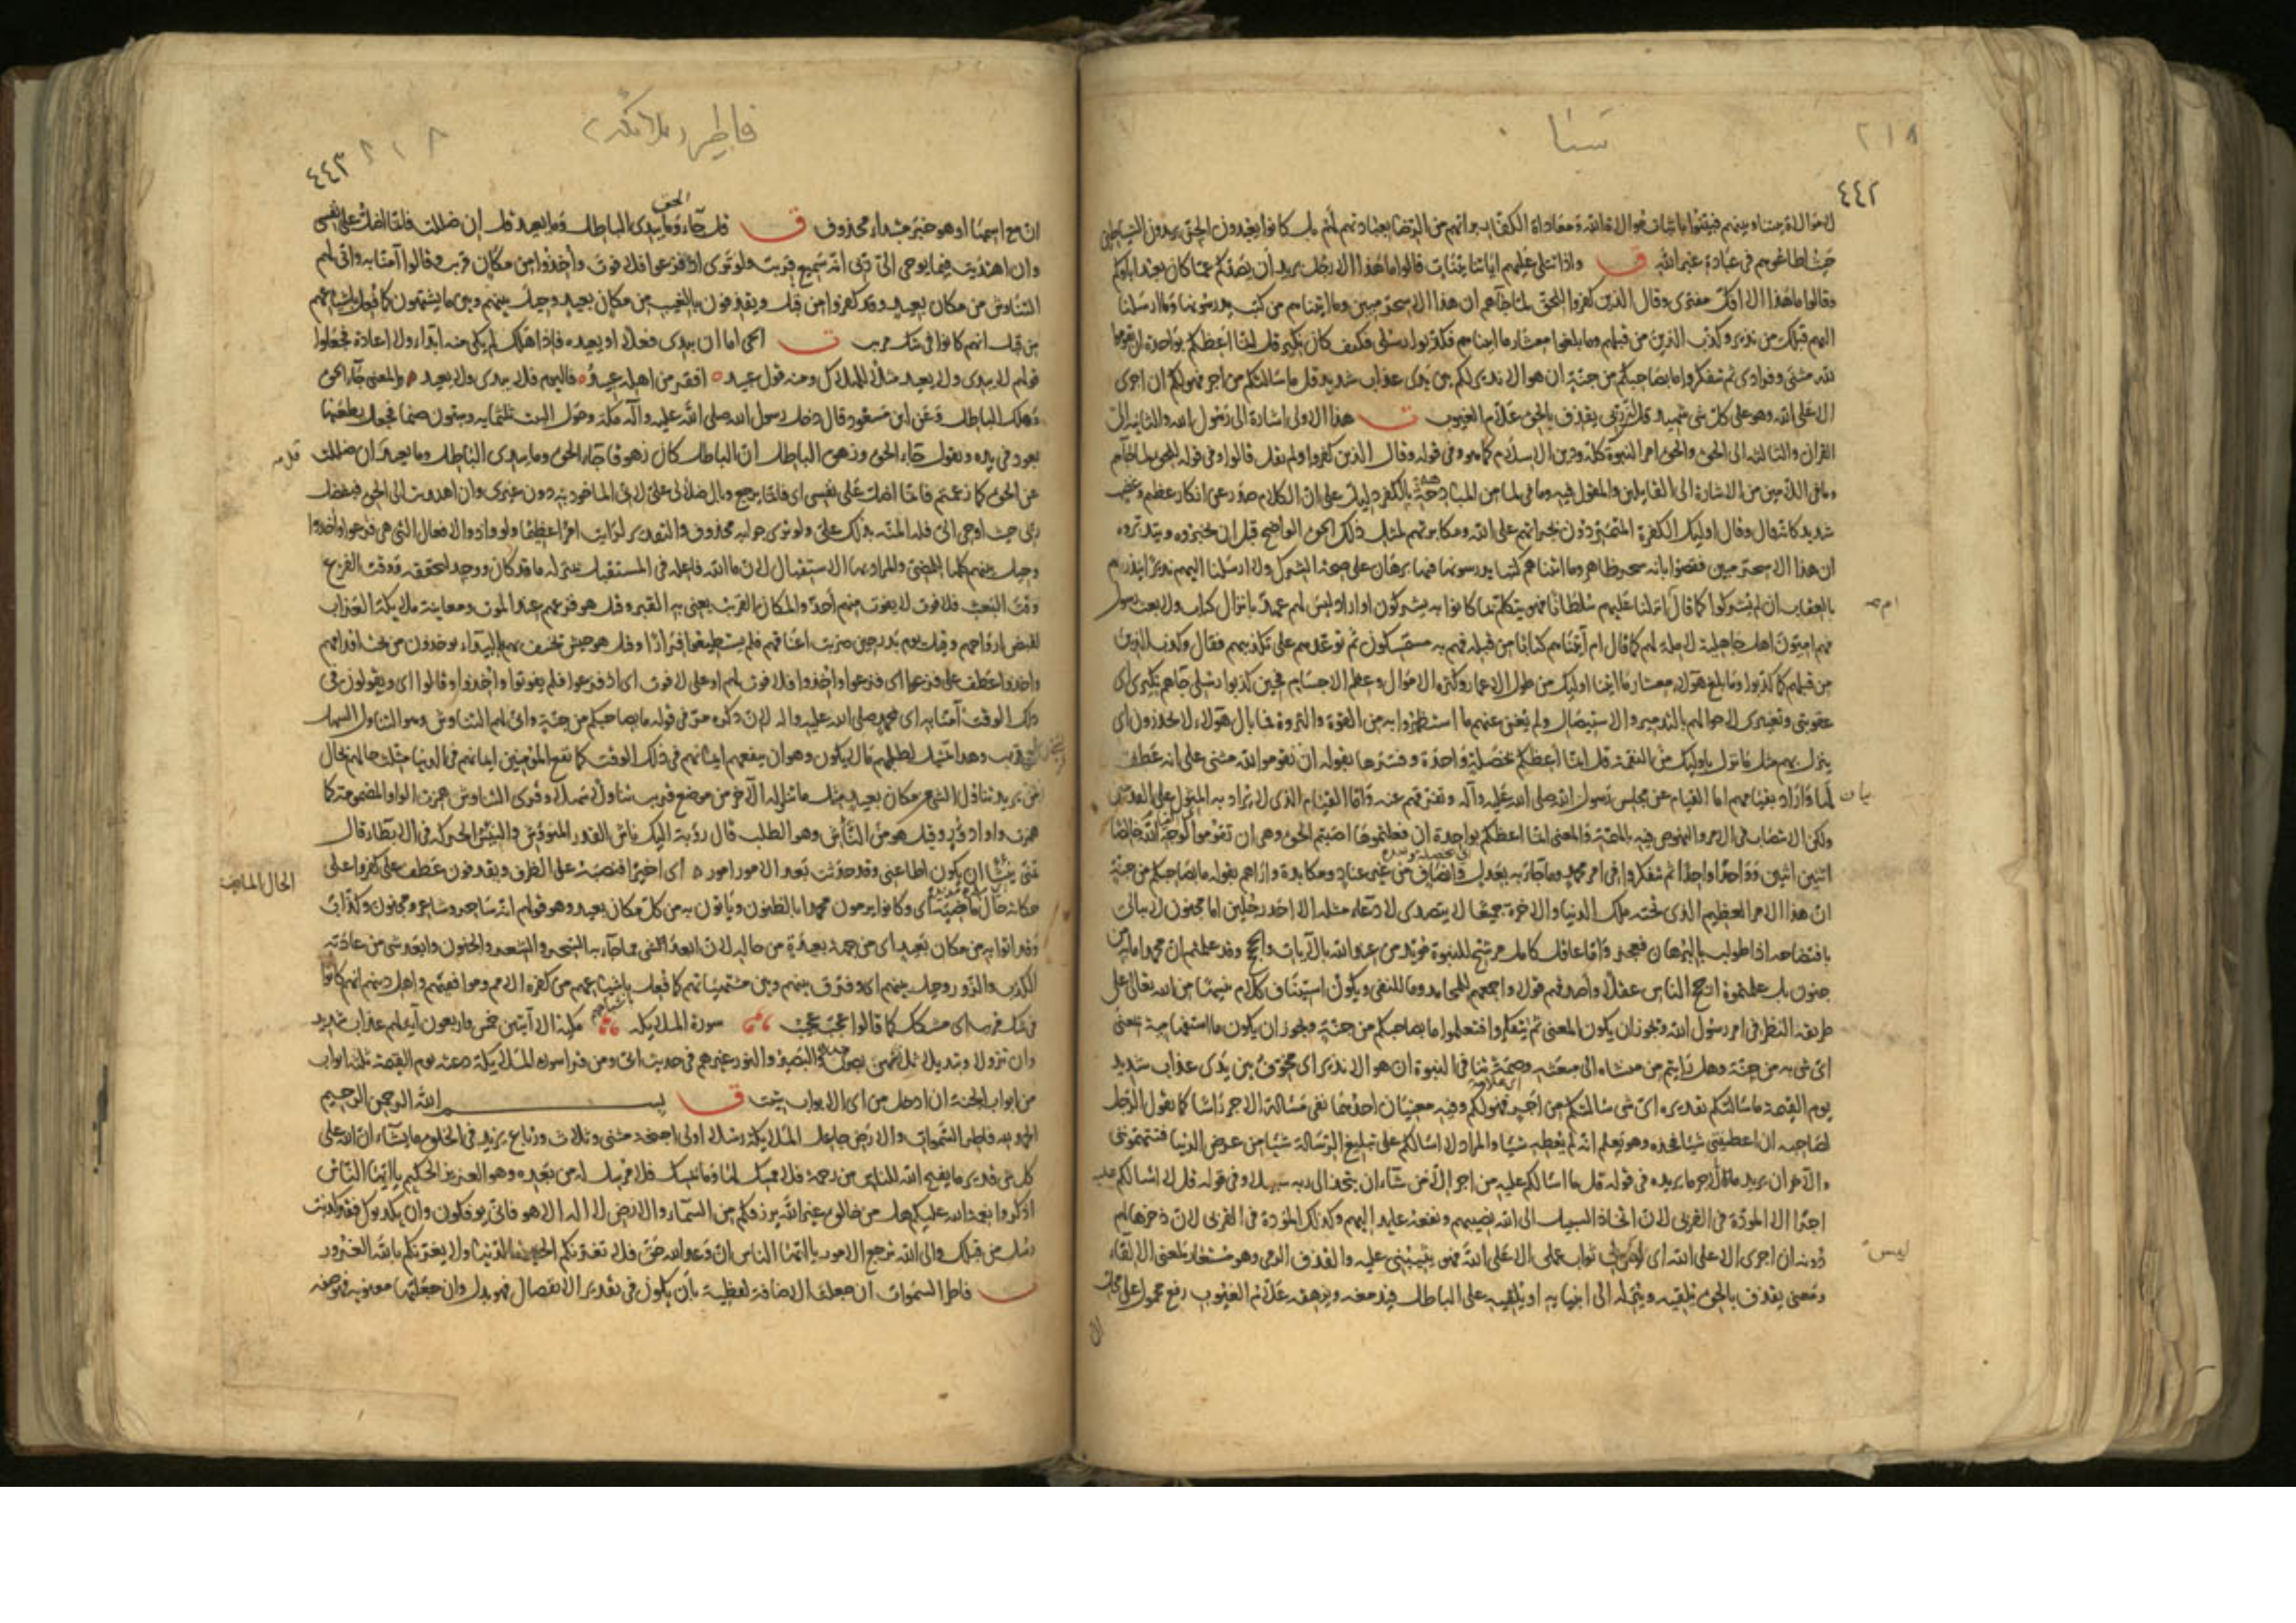 سبا
٢١٨
٤٤٢
لا موالاة بيننا وبينهم فبينوا باثبات موالاة الله ومعاداة الكفار براءتهم من الرضا بعبادتهم لهم بل كانوا يعبدون الجن يريدون الشياطين
حيث اطاعوهم في عبادة غير الله ق واذا تتلى عليهم اياتنا بينات قالوا ما هذا الا رجل يريد ان يصدكم عما كان يعبد اباؤكم
وقالوا ما هذا الا افك مفترى وقال الذين كفروا للحق لما جاءهم ان هذا الا سحر مبين وما اتيناهم من كتب يدرسونها وما ارسلنا
اليهم قبلك من نذير وكذب الذين من قبلهم وما بلغوا معشار ما اتيناهم فكذبوا رسلي فكيف كان نكير قل انما اعظكم بواحدة ان تقوموا
لله مثنى وفرادى ثم تتفكروا ما بصاحبكم من جنة ان هو الا نذير لكم بين يدي عذاب شديد قل ما سالتكم من اجر فهو لكم ان اجري
الا على الله وهو على كل شي شهيد قل ان ربي يقذف بالحق علام الغيوب ت هذا الاولى اشارة الى رسول الله والثانية الى
القران والثالثة الى الحق والحق امر النبوة كله ودين الاسلام كما هو وفي قوله وقال الذين كفروا ولم يقل قالوا وفي قوله للحق لما جاءهم
وما في اللامين من الاشارة الى القايلين والمقول فيه وما في لما من المبادهة بالكفر دليل على ان الكلام صدر عن انكار عظيم وغضب
شديد كانه قال وقال اوليك الكفرة المتمردون بجراتهم على الله ومكابرتهم لمثل ذلك الحق الواضح قبل ان يخبروه ويتدبروه
ان هذا الا سحر مبين فقضوا بانه سحر ظاهر وما اتيناهم كتبا يدرسونها فيها برهان على صحة الشرك ولا ارسلنا اليهم نذيرا ينذرهم
بالعقاب ان لم يشركوا كما قال ام انزلنا عليهم سلطانا فهو يتكلم بما كانوا به يشركون او اراد ليس لهم عهد بانزال كتاب ولا بعث رسول
فهم اميون اهل جاهلية لا ملة لهم كما قال ام آتيناهم كتابا من قبله فهم به مستمسكون ثم توعدهم على تكذيبهم فقال وكذب الذين
من قبلهم كما كذبوا وما بلغ هؤلاء معشار ما اتينا اوليك من طول الاعمار وكثرة الاموال وعظم الاجسام فحين كذبوا رسلي جاءهم نكيري اي
عقوبتي وتغييري لاحوالهم بالتدمير والاستيصال ولم يغن عنهم ما استظهروا به من القوة والثروة فما بال هؤلاء لا يحذرون اي
ينزل بهم مثل ما نزل باوليك من النقمة قل انما اعظكم بخصلة واحدة وفسرها بقوله ان تقوموا لله مثنى على انه عطف
بيان لها واراد بقيامهم اما القيام عن مجلس رسول الله صلى الله عليه وآله وتفرقهم عنه واما القيام الذي لا يراد به المثول على القدمين
ولكن الانتصاب في الامر والنهوض فيه بالهمة والمعنى انما اعظكم بواحدة ان فعلتموها اصبتم الحق وهي ان تقوموا لوجه الله خالصا
اثنين اثنين وواحدا واحدا ثم تتفكروا في امر محمد وما جاء به بعدل وانصاف من غير عناد ومكابرة واراهم بقوله ما بصاحبكم من جنة
ان هذا الامر العظيم الذي تحته ملك الدنيا والاخرة جميعا لا يتصدى لادعاء مثله الا احد رجلين اما مجنون لا يبالي
بافتضاحه اذا طولب بالبرهان فعجز واما عاقل كامل مرشح للنبوة مؤيد من عند الله بالآيات والحجج وقد علمتم ان محمدا ما به من
جنون بل علمتموه ارجح الناس عقلا وأصدقهم قولا واجمعهم للمحامد وما للنفي ويكون استيناف كلام تنبيها من الله تعالى على
طريقة النظر في امر رسول الله ويجوز ان يكون المعنى ثم تتفكروا فتعلموا ما بصاحبكم من جنة ويجوز ان يكون ما استفهامية بمعنى
اي شي به من جنة وهل رايتم من منشاه الى مبعثه وصمة تنافي النبوة ان هو الا نذير اي مخوف بين يدي عذاب شديد
يوم القيمة ما سالتكم تقديره اي شي سالتكم من اجر فهو لكم وفيه معنيان احدهما نفي مسالة الاجر راسا كما يقول الرجل
لصاحبه ان اعطيتني شيا فخذه وهو يعلم انه لم يعطه شيا والمراد لا اسالكم على تبليغ الرسالة شيا من عرض الدنيا فتتهموني
والآخر ان يريد بالاجر ما يريده في قوله قل ما اسالكم عليه من اجر الا من شاء ان يتخذ الى ربه سبيلا وفي قوله قل لا اسالكم عليه
اجرا الا المودة في القربى لان اتخاذ السبيل الى الله يصيبهم ونفعه عايد اليهم وكذلك المودة في القربى لان ذخرها لهم
دونه ان اجري الا على الله اي ليس ثواب عملي الا على الله فهو يثيبني عليه والقذف الرمي وهو مستعار لمعنى الالقاء
ومعنى يقذف بالحق يلقيه وينزله الى انبيايه او يلقيه على الباطل فيدمغه ويزهقه علام الغيوب رفع محمول على محل
ام
ليس
ان
فاطر (ملائكه)
٢١٨
٤٤٣
ان مع اسمها او هو خبر مبتداء محذوف ق قل جاء الحق وما يبدي الباطل وما يعيد قل ان ضللت فانما اضل على نفسي
وان اهتديت فبما يوحي الي ربي انه سميع قريب ولو ترى اذ فزعوا فلا فوت وأخذوا من مكان قريب وقالوا آمنا به واني لهم
التناوش من مكان بعيد وقد كفروا به من قبل ويقذفون بالغيب من مكان بعيد وحيل بينهم وبين ما يشتهون كما فعل باشياعهم
من قبل انهم كانوا في شك مريب ت الحي اما ان يبدي فعلا او يعيده فاذا هلك لم يكن منه ابداء ولا اعادة فجعلوا
قولهم لا يبدي ولا يعيد مثلا للهلاك ومنه قول عبيد افقر من اهله عبيد فاليوم لا يبدي ولا يعيد والمعنى جاء الحق
وهلك الباطل وعن ابن مسعود قال دخل رسول الله صلى الله عليه وآله مكة وحول البيت ثلثمايه وستون صنما فجعل يطعنها
بعود في يده ويقول جاء الحق وزهق الباطل ان الباطل كان زهوقا جاء الحق وما يبدي الباطل وما يعيد ان ضللت
عن الحق كما زعمتم فانما اضل على نفسي اي فانما يرجع وبال ضلالي علي لاني الماخوذ به دون غيري وان اهتديت الى الحق فبفضل
ربي حيث اوحى الي فله المنة بذلك علي ولو ترى جوابه محذوف والتقدير لرايت امرا عظيما ولو واذ والافعال التي هي فزعوا واخذوا
وحيل بينهم كلها للمضي والمراد بها الاستقبال لان ما الله فاعله في المستقبل بمنزلة ما قد كان ووجد لتحققه ووقت الفزع
وقت البعث فلا فوت لا يفوت منهم أحد والمكان القريب يعني به القبر وقيل هو فزعهم عند الموت ومعاينة ملايكة العذاب
لقبض ارواحهم وقيل يوم بدر حين ضربت اعناقهم فلم يستطيعوا فرارا وقيل هو جيش تخسف بهم البيداء يوخذون من تحت اقدامهم
واخذوا عطف على فزعوا اي فزعوا واخذوا فلا فوت لهم او على لا فوت اي اذ فزعوا فلم يفوتوا واخذوا وقالوا اي ويقولون في
ذلك الوقت آمنا به اي محمد صلى الله عليه واله لان ذكره مر في قوله ما بصاحبكم من جنة واني لهم التناوش وهو التناول السهل
لشي قريب وهذا تمثيل لطلبهم ما لا يكون وهو ان ينفعهم ايمانهم في ذلك الوقت كما نفع المؤمنين ايمانهم في الدنيا مثلت حالهم بحال
من يريد تناول الشي من مكان بعيد مثل ما يتناوله الآخر من موضع قريب تناولا سهلا وقرى التناوش همزت الواو المضمومة كما
همزت واو ادؤر وقيل هو من الناش وهو الطلب قال رؤبة اليك ناش القدر المنؤوش والنيش الحركة في الابطاء قال
تمنى نئيشا ان يكون اطاعني وقد حدثت بعد الامور امور اي اخيرا فنصبه على الظرف ويقذفون عطف على كفروا على
حكاية حال ماضية اي وكانوا يرمون محمدا بالظنون وياتون به من كل مكان بعيد وهو قولهم انه ساحر وشاعر ومجنون وكذاب
وقد اتوا به من مكان بعيد اي من جهة بعيدة من حاله لان ابعد الشي مما جاء به السحر والشعر والجنون وابعد شي من عادته
الكذب والزور وحيل بينهم اي وفرق بينهم وبين مشتهياتهم كما فعل باشياعهم من كفرة الامم وموافقيهم واهل دينهم انهم كانوا
في شك مريب اي مشكك كما قالوا عجب عجيب سورة الملايكة مكية الا آيتين خمس واربعون آية لهم عذاب شديد
من ابواب الجنة ان ادخل من اي الابواب شيت ق بسم الله الرحمن الرحيم
الحمد لله فاطر السموات والارض جاعل الملايكة رسلا اولي اجنحة مثنى وثلاث ورباع يزيد في الخلق ما يشاء ان الله على
كل شي قدير ما يفتح الله للناس من رحمة فلا ممسك لها وما يمسك فلا مرسل له من بعده وهو العزيز الحكيم يا ايها الناس
اذكروا نعمت الله عليكم هل من خالق غير الله يرزقكم من السماء والارض لا اله الا هو فاني توفكون وان يكذبوك فقد كذبت
رسل من قبلك والى الله ترجع الامور يا ايها الناس ان وعد الله حق فلا تغرنكم الحيوة الدنيا ولا يغرنكم بالله الغرور
ت فاطر السموات ان جعلت الاضافة لفظية بان يكون في تقدير الانفصال فهو بدل وان جعلتها معنوية فهو صفة
الحال الماضية